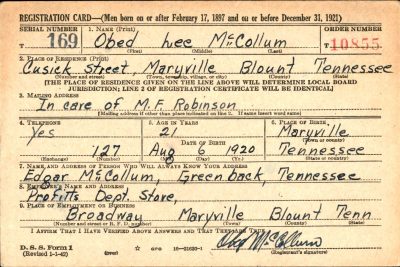 REGISTRATION CARD—(Men born on or after February 17, 1897 and on or before December 31, 1921)
SERIAL NUMBER 1. NAME (Print) ORDER NUMBER
T 169 Obed Lee McCollum T-10855
(First) (Middle) (Last)
2. PLACE OF RESIDENCE (Print)
Cusick Street Maryville Blount Tennessee
(Number and street) (Town, township, village, or city) (County) (State)
[THE PLACE OF RESIDENCE GIVEN ON THE LINE ABOVE WILL DETERMINE LOCAL BOARD
JURISDICTION; LINE 2 OF REGISTRATION CERTIFICATE WILL BE IDENTICAL]
3. MAILING ADDRESS
In care of M.F. Robinson
[Mailing address if other than place indicated on line 2. If same insert word same]
4. TELEPHONE 5. AGE IN YEARS 6. PLACE OF BIRTH
Yes 21 Maryville
DATE OF BIRTH (Town or county)
127 Aug 3 1920 Tennessee
(Exchange) (Number) (Mo.) (Day) (Yr.) (State or country)
7. NAME AND ADDRESS OF PERSON WHO WILL ALWAYS KNOW YOUR ADDRESS
Edgar McCollum, Greenback, Tennessee
8. EMPLOYER'S NAME AND ADDRESS
Proffitts Dept. Store,
9. PLACE OF EMPLOYMENT OR BUSINESS
Broadway Maryville Blount Tenn.
(Number and street or R. F. D. number) (Town) (County) (State)
I AFFIRM THAT I HAVE VERIFIED ABOVE ANSWERS AND THAT THEY ARE TRUE.
D. S. S. Form 1 16—21630-1 Obed McCollum
(Revised 1-1-42) (over) (Registrant's signature)